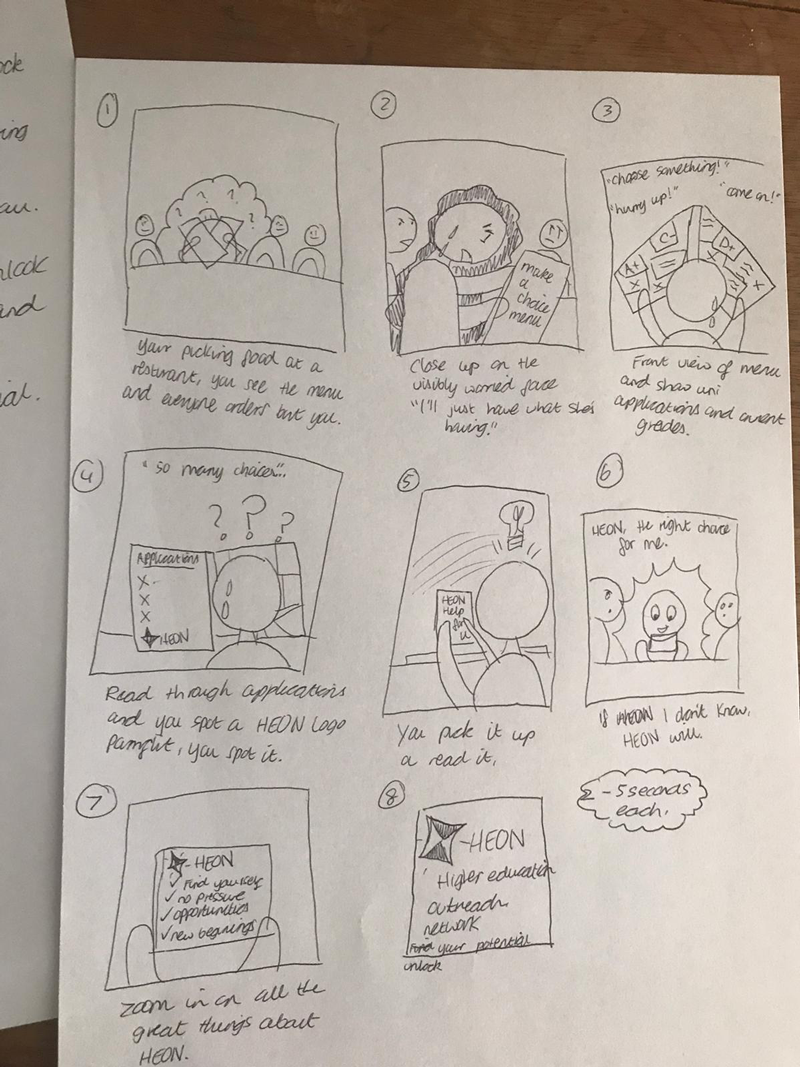 ock
ing
au.
nlock
and
ial.
1
? ? ? ?
Your picking food at a
resturant, you see the menu
and everyone orders but you.
2
make
a
choice
menu
Close up on the
visibly worried face
"I'll just have what she's
having."
3
"choose something!"
"hurry up!"
"come on!"
A+
C-
D+
x
x
x
Front view of menu
and show uni
applications and current
grades.
4
"so many choices"..
? ? ?
Applications
x -
x
x
HEON
Read through applications
and you spot a HEON logo
Pamphlet, you spot it.
5
HEON
Help
for
u
You pick it up
a read it,
6
HEON, the right choice
for me.
if HEON I don't know,
HEON will.
2-5 seconds
each.
7
-HEON
✓ Find yourself
✓ no pressure
✓ opportunities
✓ new beginings
zoom in on all the
great things about
HEON.
8
-HEON
' Higher education
outreach
network
Find your potential
unlock